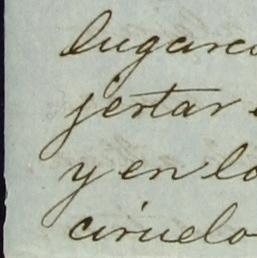 lugarci
jertar
y en lo
ciruelo